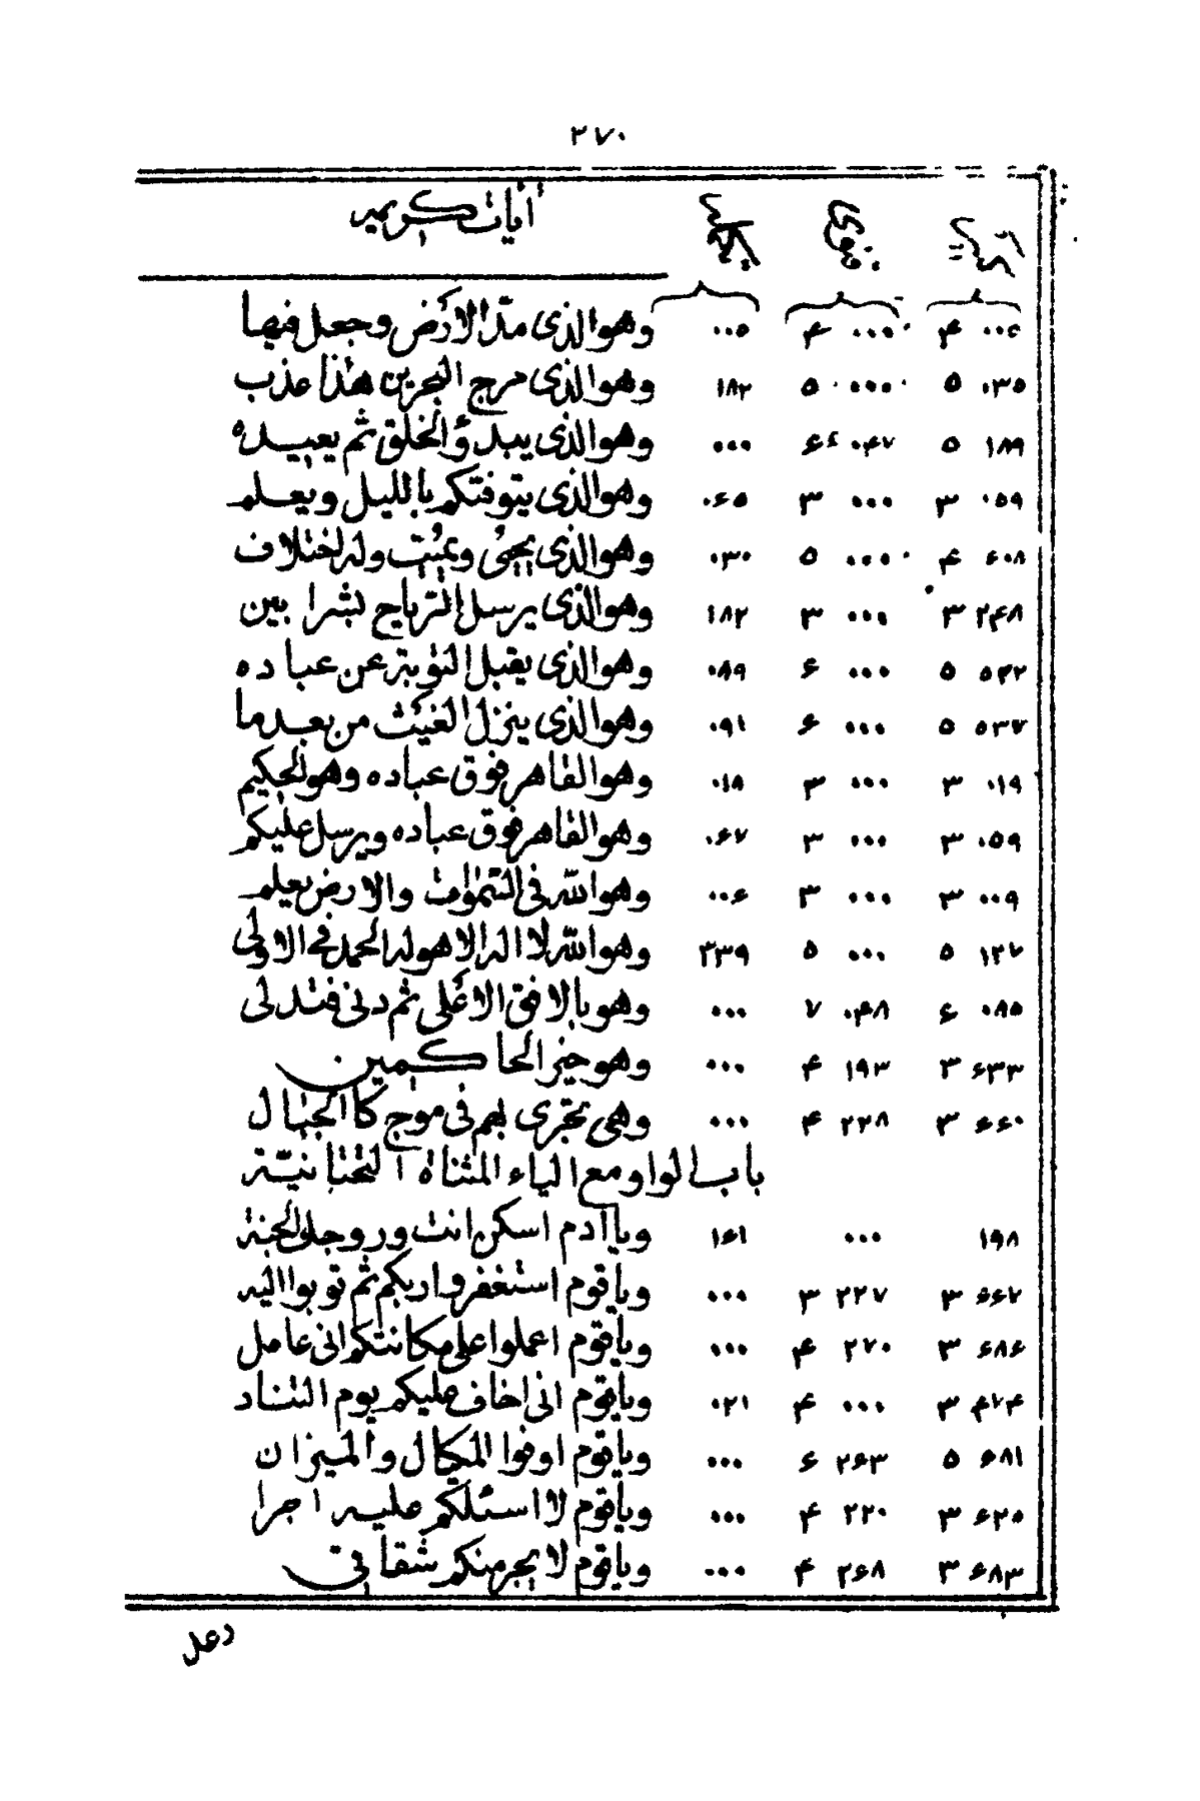 ٢٧٠
آيات كريمه
٠٠٤ ۴ ٠٠٠ ۴ ٠٠٥ وهو الذى مدّ الارض وجعل فيها
٠٣٥ ٥ ٠٠٠ ٥ ١٨٢ وهو الذى مرج البحرين هذا عذب
١٨٩ ٥ ٠۴٧ ۶ ٠٠٠ وهو الذى يبدؤ الخلق ثم يعيده
٠٥٩ ٣ ٠٠٠ ٣ ٠۶٥ وهو الذى يتوفيكم بالليل ويعلم
۶٠٨ ۴ ٠٠٠ ٥ ٠٣٠ وهو الذى يحيى ويميت وله اختلاف
٢۴٨ ٣ ٠٠٠ ٣ ١٨٢ وهو الذى يرسل الرياح بشرا بين
٥٣٢ ٥ ٠٠٠ ۶ ٠٨٩ وهو الذى يقبل التوبة عن عباده
٥٣٧ ٥ ٠٠٠ ۶ ٠٩١ وهو الذى ينزل الغيث من بعد ما
٠١٩ ٣ ٠٠٠ ٣ ٠١٨ وهو القاهر فوق عباده وهو الحكيم
٠٥٩ ٣ ٠٠٠ ٣ ٠۶٧ وهو القاهر فوق عباده ويرسل عليكم
٠٠٩ ٣ ٠٠٠ ٣ ٠٠۶ وهو الله فى السموات والارض يعلم
١٢٧ ٥ ٠٠٠ ٥ ٢٣٩ وهو الله لا اله الا هو له الحمد فى الاولى
٠٨٥ ۶ ٠۴٨ ٧ ٠٠٠ وهو بالافق الاعلى ثم دنى فتدلى
۶٣٣ ٣ ١٩٣ ۴ ٠٠٠ وهو خير الحاكمين
۶۶٠ ٣ ٢٢٨ ۴ ٠٠٠ وهى تجرى بهم فى موج كالجبال
باب الواو مع الياء المثناة التحتانيّة
١٩٨ ٠٠٠ ١۶١ ويا آدم اسكن انت وزوجك الجنة
۶۶٧ ٣ ٢٢٧ ٣ ٠٠٠ ويا قوم استغفروا ربكم ثم توبوا اليه
۶٨۶ ٣ ٢٧٠ ۴ ٠٠٠ ويا قوم اعملوا على مكانتكم انى عامل
۴٧۴ ٣ ٠٠٠ ۴ ٠٢١ ويا قوم انى اخاف عليكم يوم التناد
۶٨١ ٥ ٢۶٣ ۶ ٠٠٠ ويا قوم اوفوا المكيال والميزان
۶٢٥ ٣ ٢٢٠ ۴ ٠٠٠ ويا قوم لا اسئلكم عليه اجرا
۶٨٣ ٣ ٢۶٨ ۴ ٠٠٠ ويا قوم لا يجرمنكم شقاقى